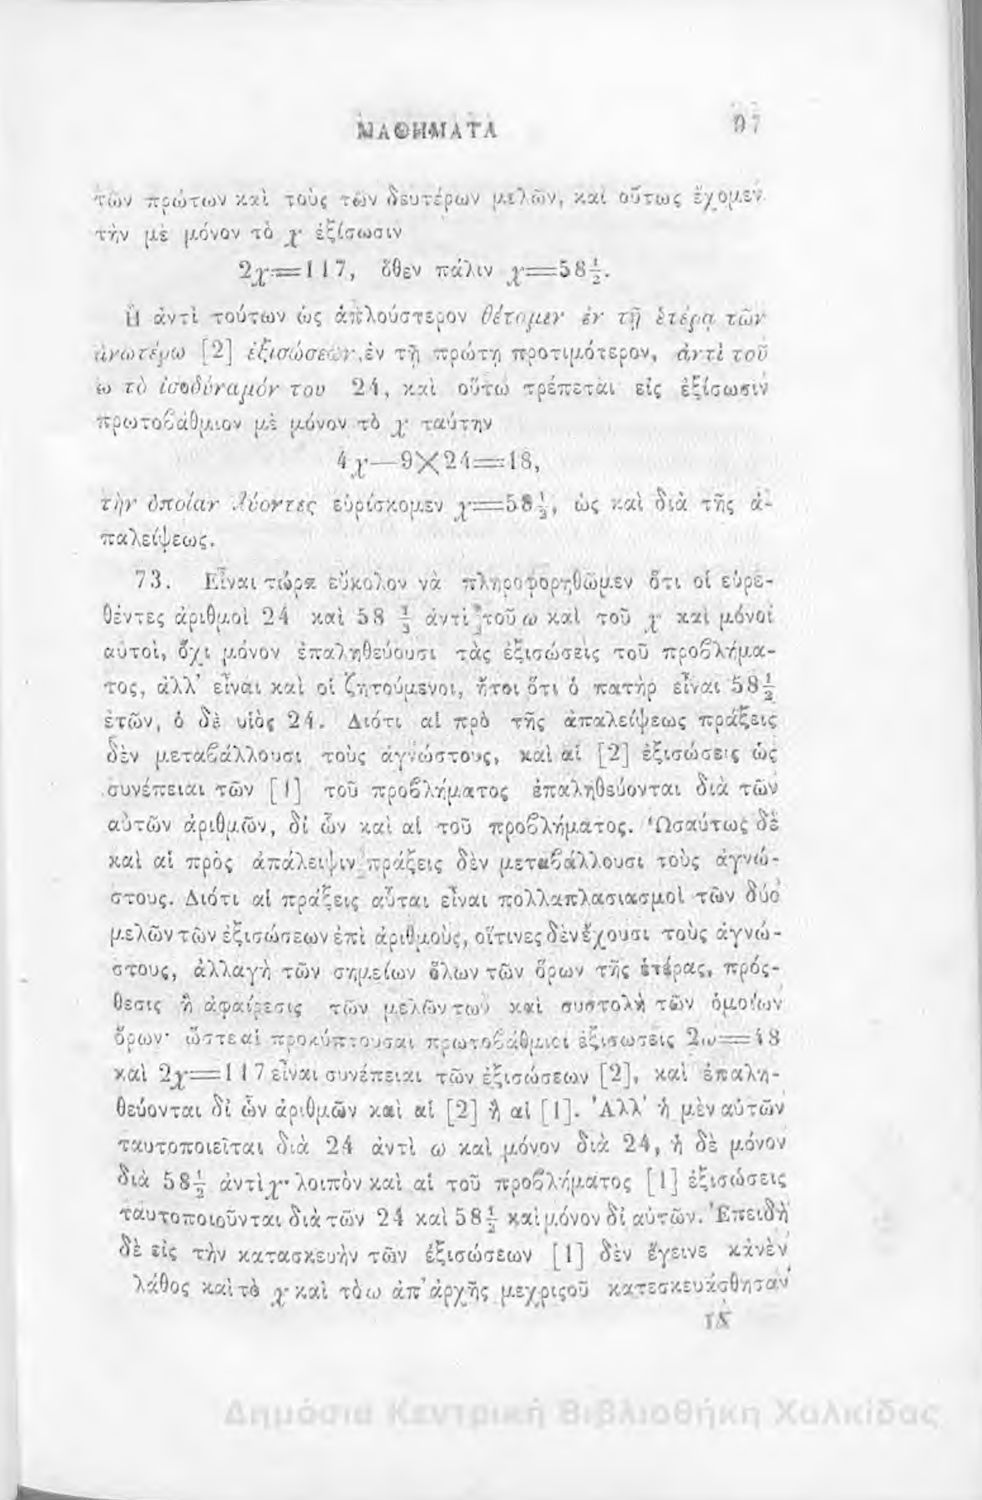 ΜΑΘΗΜΑΤΑ 97
τῶν πρώτων καὶ τοὺς τῶν δευτέρων μελῶν, καὶ οὕτως ἔχομεν
τὴν μὲ μόνον τὸ χ ἐξίσωσιν
2χ=117, ὅθεν πάλιν χ=58½.
Ἢ ἀντὶ τούτων ὡς ἁπλούστερον θέτομεν ἐν τῇ ἑτέρᾳ τῶν
ἀνωτέρω [2] ἐξισώσεων, ἐν τῇ πρώτῃ προτιμότερον, ἀντὶ τοῦ
ω τὸ ἰσοδύναμόν του 24, καὶ οὕτω τρέπεται εἰς ἐξίσωσιν
πρωτοβάθμιον μὲ μόνον τὸ χ ταύτην
4χ—9×24=18,
τὴν ὁποίαν λύοντες εὑρίσκομεν χ=58½, ὡς καὶ διὰ τῆς ἀ-
παλείψεως.
73. Εἶναι τώρα εὔκολον νὰ πληροφορηθῶμεν ὅτι οἱ εὑρε-
θέντες ἀριθμοὶ 24 καὶ 58 ½ ἀντὶ τοῦ ω καὶ τοῦ χ καὶ μόνοι
αὐτοὶ, ὄχι μόνον ἐπαληθεύουσι τὰς ἐξισώσεις τοῦ προβλήμα-
τος, ἀλλ' εἶναι καὶ οἱ ζητούμενοι, ἤτοι ὅτι ὁ πατὴρ εἶναι 58½
ἐτῶν, ὁ δὲ υἱὸς 24. Διότι αἱ πρὸ τῆς ἀπαλείψεως πράξεις
δὲν μεταβάλλουσι τοὺς ἀγνώστους, καὶ αἱ [2] ἐξισώσεις ὡς
συνέπειαι τῶν [1] τοῦ προβλήματος ἐπαληθεύονται διὰ τῶν
αὐτῶν ἀριθμῶν, δἰ ὧν καὶ αἱ τοῦ προβλήματος. Ὡσαύτως δὲ
καὶ αἱ πρὸς ἀπάλειψιν πράξεις δὲν μεταβάλλουσι τοὺς ἀγνώ-
στους. Διότι αἱ πράξεις αὗται εἶναι πολλαπλασιασμοὶ τῶν δύο
μελῶν τῶν ἐξισώσεων ἐπὶ ἀριθμοὺς, οἵτινες δὲν ἔχουσι τοὺς ἀγνώ-
στους, ἀλλαγὴ τῶν σημείων ὅλων τῶν ὅρων τῆς ἑτέρας, πρός-
θεσις ἢ ἀφαίρεσις τῶν μελῶν των καὶ συστολὴ τῶν ὁμοίων
ὅρων· ὥστε αἱ προκύπτουσαι πρωτοβάθμιοι ἐξισώσεις 2ω=48
καὶ 2χ=117 εἶναι συνέπειαι τῶν ἐξισώσεων [2], καὶ ἐπαλη-
θεύονται δἰ ὧν ἀριθμῶν καὶ αἱ [2] ἢ αἱ [1]. Ἀλλ' ἡ μὲν αὐτῶν
ταυτοποιεῖται διὰ 24 ἀντὶ ω καὶ μόνον διὰ 24, ἡ δὲ μόνον
διὰ 58½ ἀντὶ χ· λοιπὸν καὶ αἱ τοῦ προβλήματος [1] ἐξισώσεις
ταυτοποιοῦνται διὰ τῶν 24 καὶ 58½ καὶ μόνον δἰ αὐτῶν. Ἐπειδὴ
δὲ εἰς τὴν κατασκευὴν τῶν ἐξισώσεων [1] δὲν ἔγεινε κἀνὲν
λάθος καὶ τὸ χ καὶ τὸ ω ἀπ' ἀρχῆς μεχριςοῦ κατεσκευάσθησαν
Δημόσια Κεντρική Βιβλιοθήκη Χαλκίδας